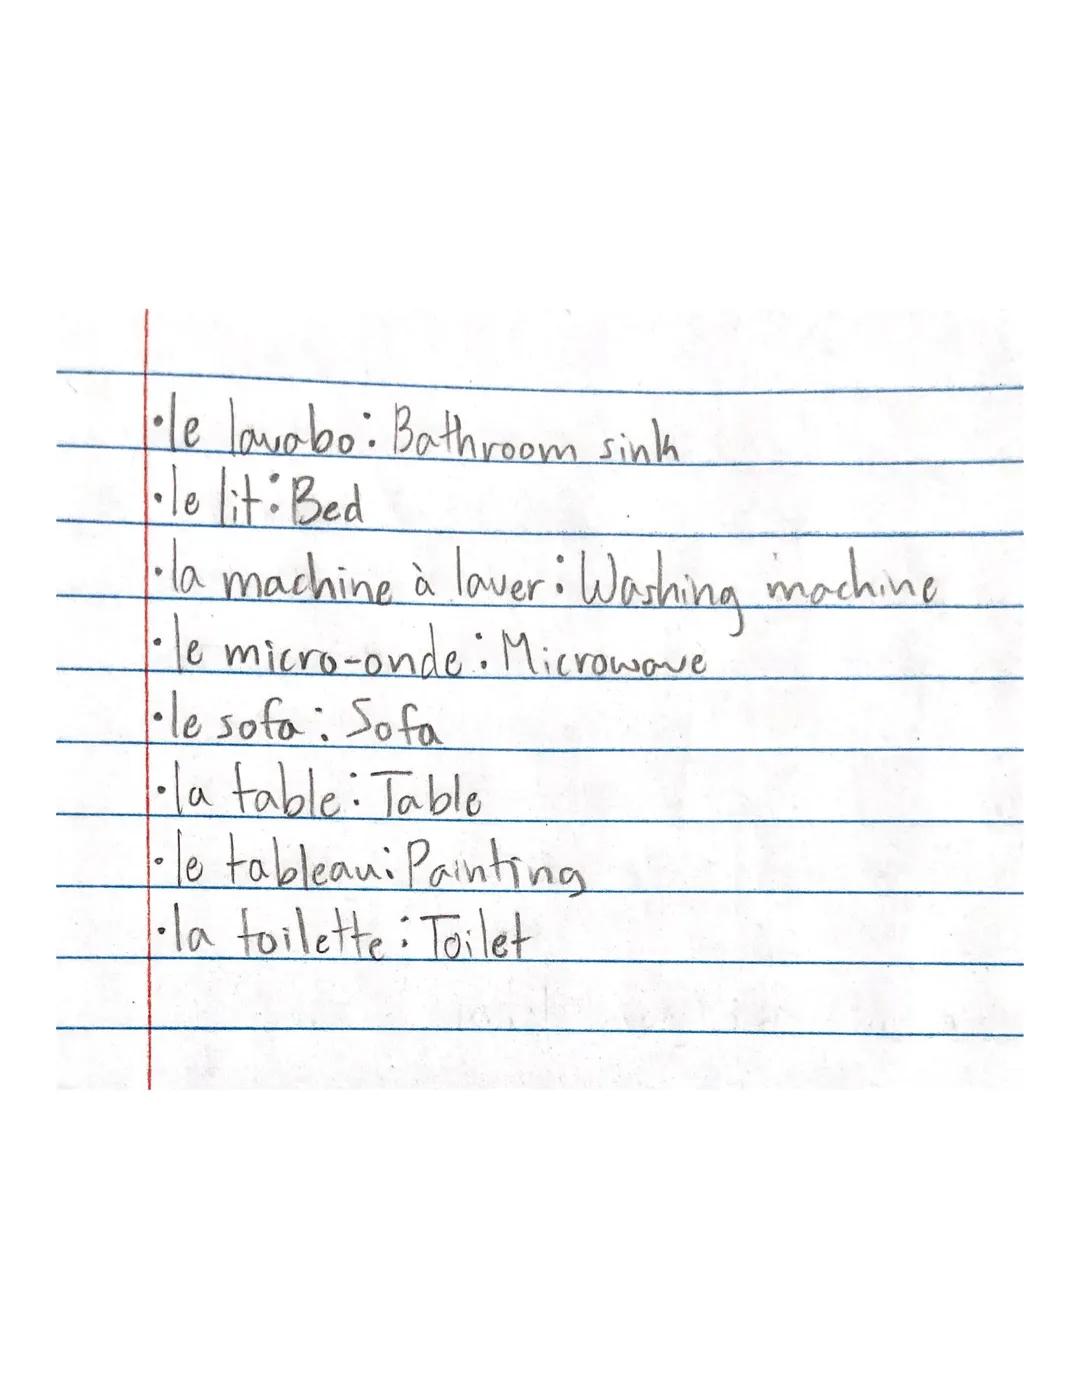 •le lavabo: Bathroom sink
•le lit: Bed
•la machine à laver: Washing machine
•le micro-onde: Microwave
•le sofa: Sofa
•la table: Table
•le tableau: Painting
•la toilette: Toilet